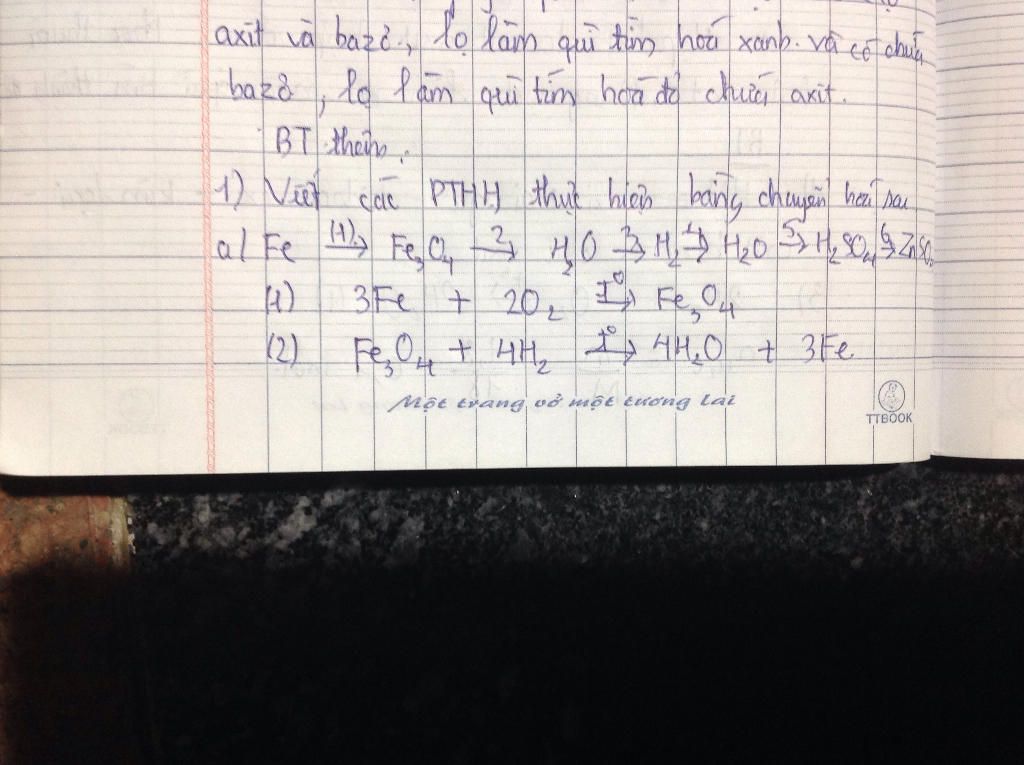 axit và bazơ, lọ làm quì tím hoá xanh và có chứa
bazơ, lọ làm quì tím hoá đỏ chứa axit.
BT thêm.
1) Viết các PTHH thực hiện bảng chuyển hoá sau
a/ Fe (1)→ Fe₃O₄ 2→ H₂O 3→ H₂ 4→ H₂O 5→ H₂SO₄ 6→ ZnSO₄
(1) 3Fe + 2O₂ t°→ Fe₃O₄
(2) Fe₃O₄ + 4H₂ t°→ 4H₂O + 3Fe
Một trang vở một tương lai
TTBOOK